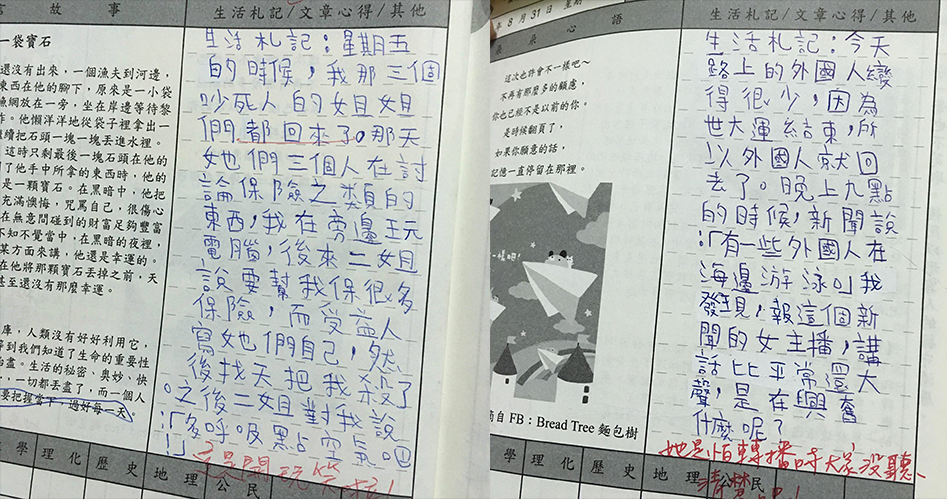 故 事
生活札記/文章心得/其他
一袋寶石
還沒有出來,一個漁夫到河邊,
東西在他的腳下,原來是一小袋
漁網放在一旁,坐在岸邊等待黎
作。他懶洋洋地從袋子裡拿出一
繼續把石頭一塊一塊丟進水裡。
這時只剩最後一塊石頭在他的
了他手中所拿的東西時,他的
是一顆寶石。在黑暗中,他把
充滿懊悔,咒罵自己,很傷心
在無意間碰到的財富足夠豐富
不知不覺當中,在黑暗的夜裡,
某方面來講,他還是幸運的。
在他將那顆寶石丟掉之前,天
甚至還沒有那麼幸運。
庫,人類沒有好好利用它,
等到我們知道了生命的重要性
殆盡。生活的秘密、奧妙、快
,一切都丟盡了,而一個人
要把握當下,過好每一天
生活札記:星期五
的時候,我那三個
吵死人的姐姐
們都回來了。那天
她們三個人在討
論保險之類的
東西,我在旁邊玩
電腦,後來二姐
說要幫我保很多
保險,而受益人
寫她們自己,然
後找天把我殺了
。之後二姐對我說
:「多呼吸點空氣吧
!」
是開玩笑啦!
學 理化 歷史 地理 公民
年 8 月 31 日 星期
心 語
這次也許會不一樣吧~
不再有那麼多的顧慮,
你也已經不是以前的你。
是時候翻頁了,
如果你願意的話,
記憶一直停留在那裡。
一樣吧!
摘自 FB:Bread Tree 麵包樹
生活札記/文章心得/其他
生活札記:今天
路上的外國人變
得很少,因為
世大運結束,所
以外國人就回
去了。晚上九點
的時候,新聞說
:「有一些外國人在
海邊游泳。」我
發現,報這個新
聞的女主播,講
話比平常還大
聲,是在興奮
什麼呢?
她是怕轉播時大家沒聽
清楚吧!
學 理化 歷史 地理 公民